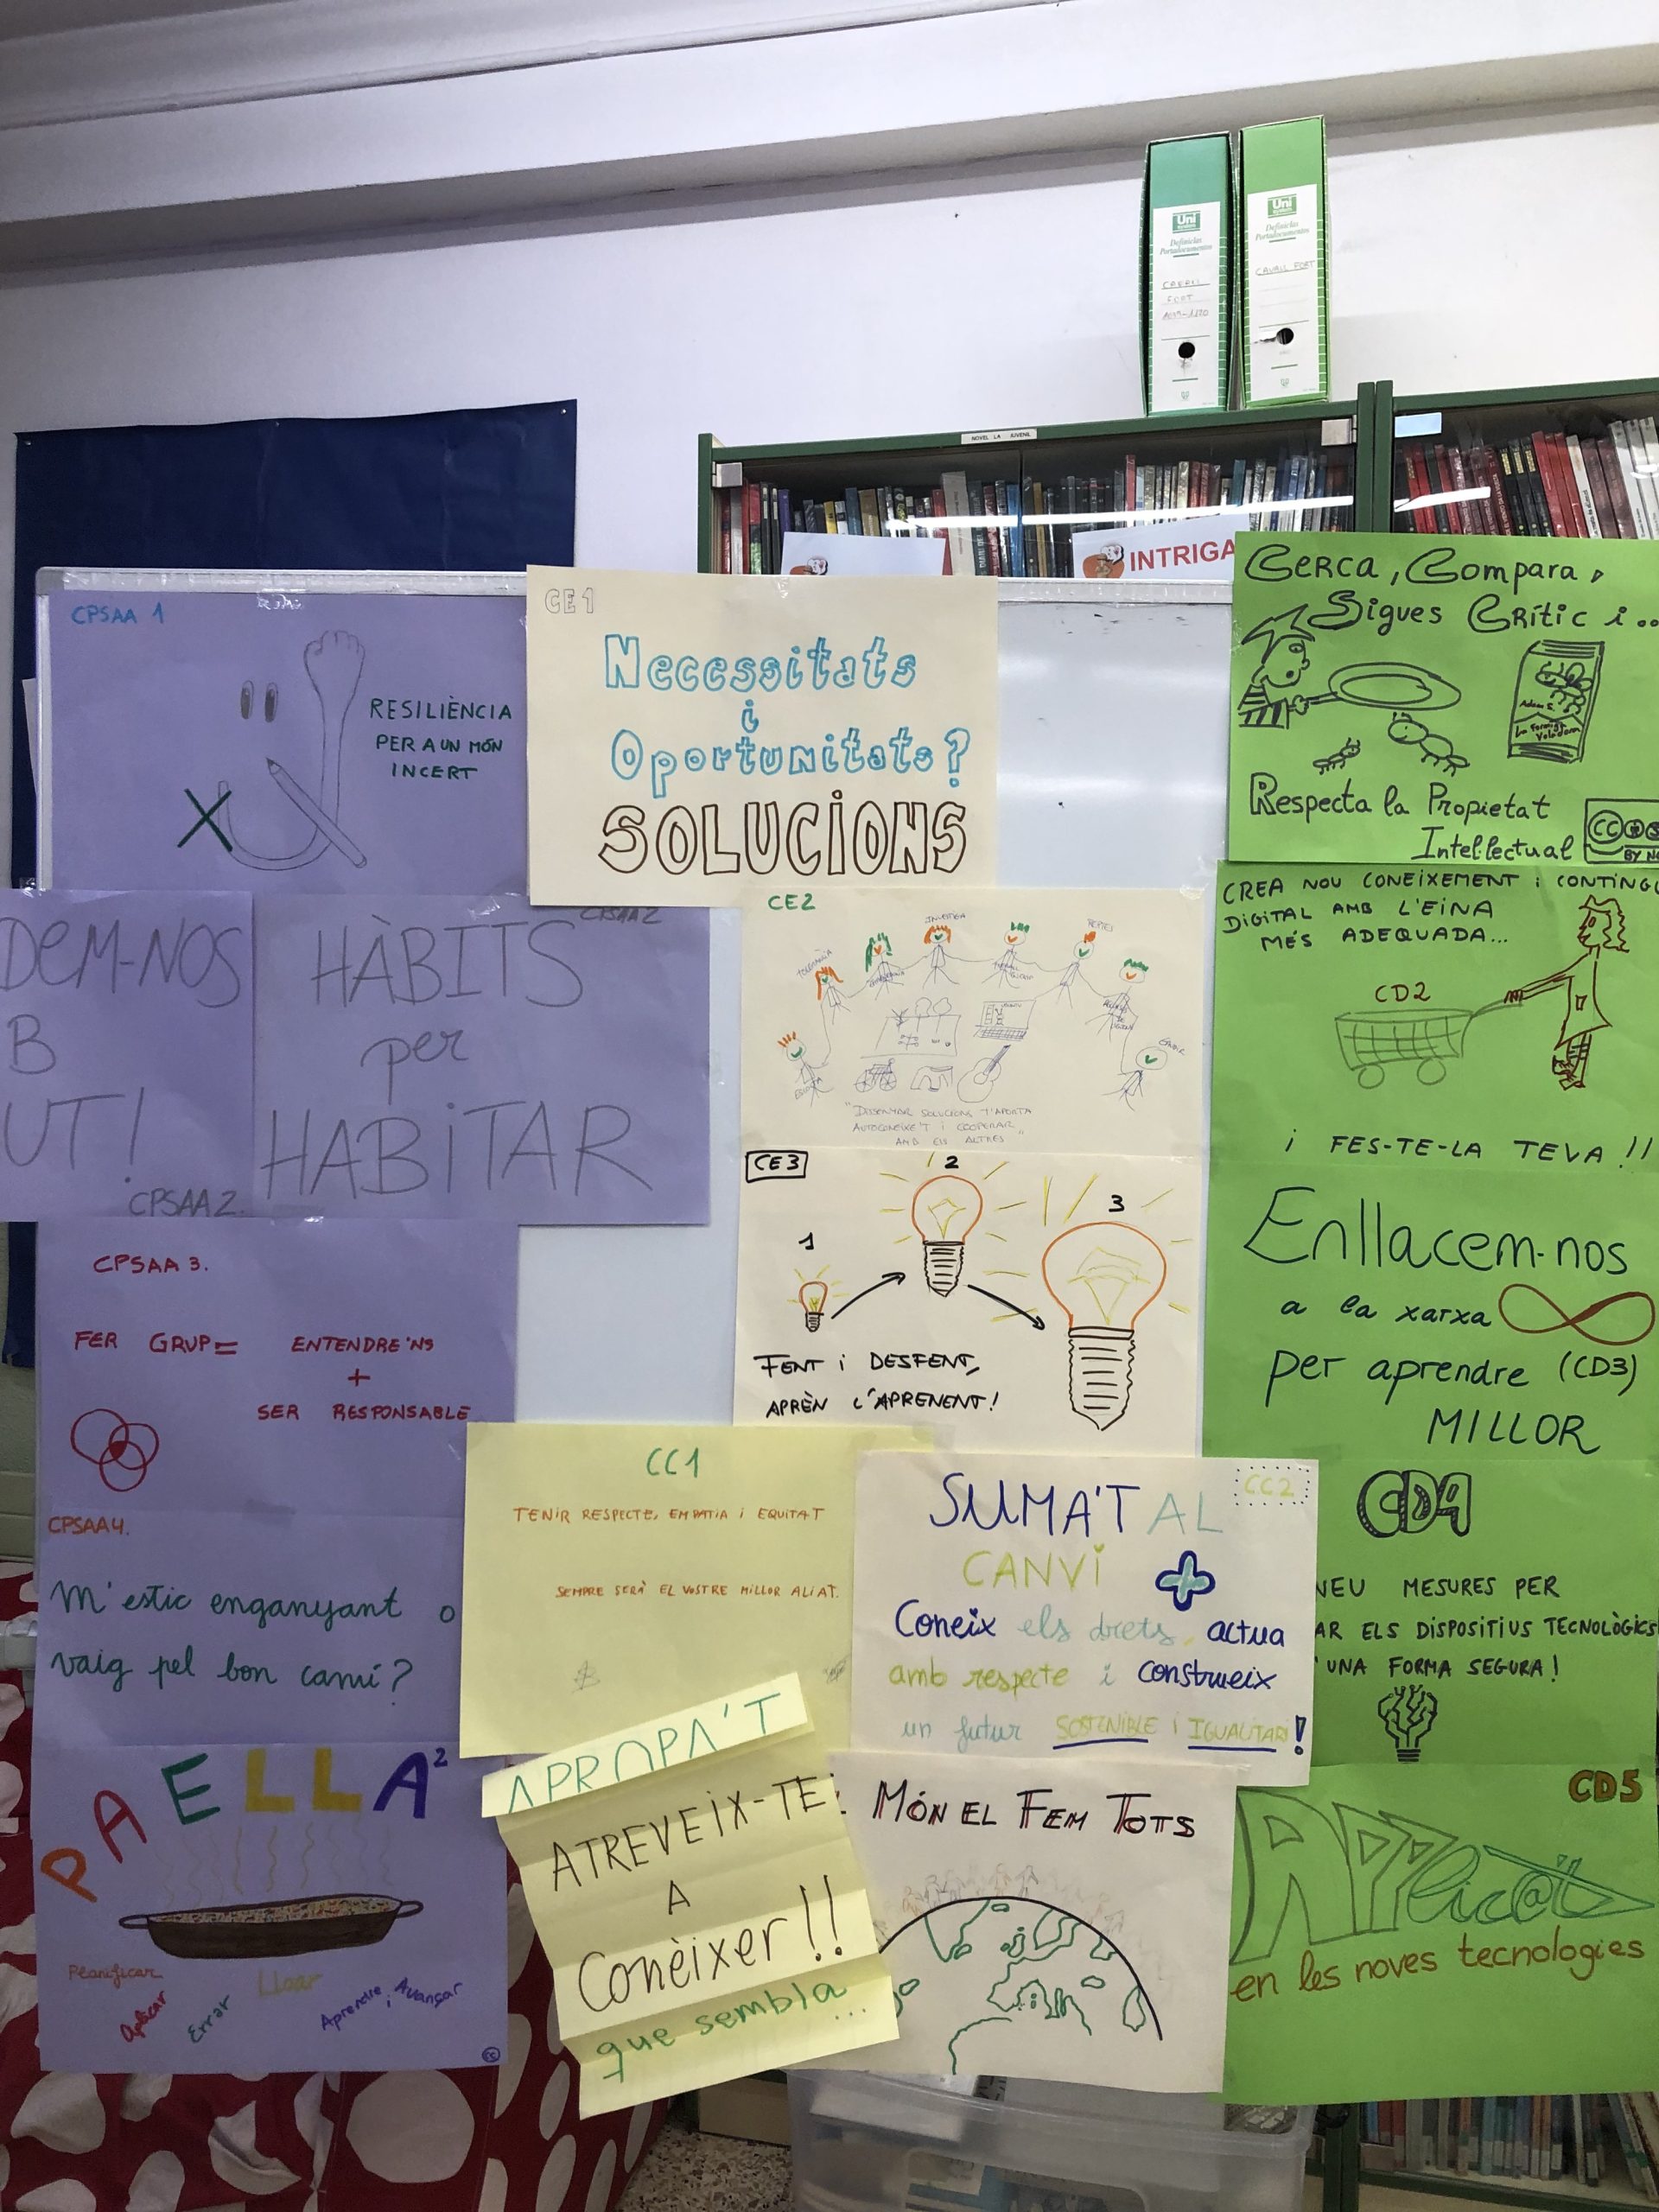 Uni
Definiclas
Portadocumentos
Uni
Definiclas
Portadocumentos
CAVALL FORT
NOVEL LA JUVENIL
INTRIGA
CPSAA 1
RESILIÈNCIA
PER A UN MÓN
INCERT
CE 1
Necessitats
i
Oportunitats?
SOLUCIONS
CERCA, COMPARA,
SIGUES CRÍTIC i...
Respecta la Propietat
Intel·lectual
CC
BY NC
CREA NOU CONEIXEMENT i CONTINGU
DIGITAL AMB L'EINA
MÉS ADEQUADA...
CD2
i FES-TE-LA TEVA !!
DEM-NOS
B
UT!
CPSAA2.
CPSAA2
HÀBITS
per
HABITAR
CE2
"DISSENYAR SOLUCIONS T'APORTA
AUTOCONEIXE'T i COOPERAR
AMB ELS ALTRES"
CE3
1
2
3
FENT i DESFENT,
APRÈN L'APRENENT!
Enllacem-nos
a la xarxa
per aprendre (CD3)
MILLOR
CPSAA 3.
FER GRUP= ENTENDRE'NS
+
SER RESPONSABLE
CPSAA4.
M'estic enganyant o
vaig pel bon camí?
CC1
TENIR RESPECTE, EMPATIA i EQUITAT
SEMPRE SERÀ EL VOSTRE MILLOR ALIAT.
CC2
SUMA'T AL
CANVi
Coneix els drets, actua
amb respecte i construeix
un futur SOSTENIBLE i IGUALITARI!
CD4
NEU MESURES PER
AR ELS DISPOSITIUS TECNOLÒGICS
'UNA FORMA SEGURA!
PAELLA²
Planificar
Aplicar
Errar
Aprendre i Avançar
CC
APROPA'T
ATREVEIX-TE
A
Conèixer!!
que sembla...
MÓN EL FEM TOTS
CD5
APPlic@'t
en les noves tecnologies